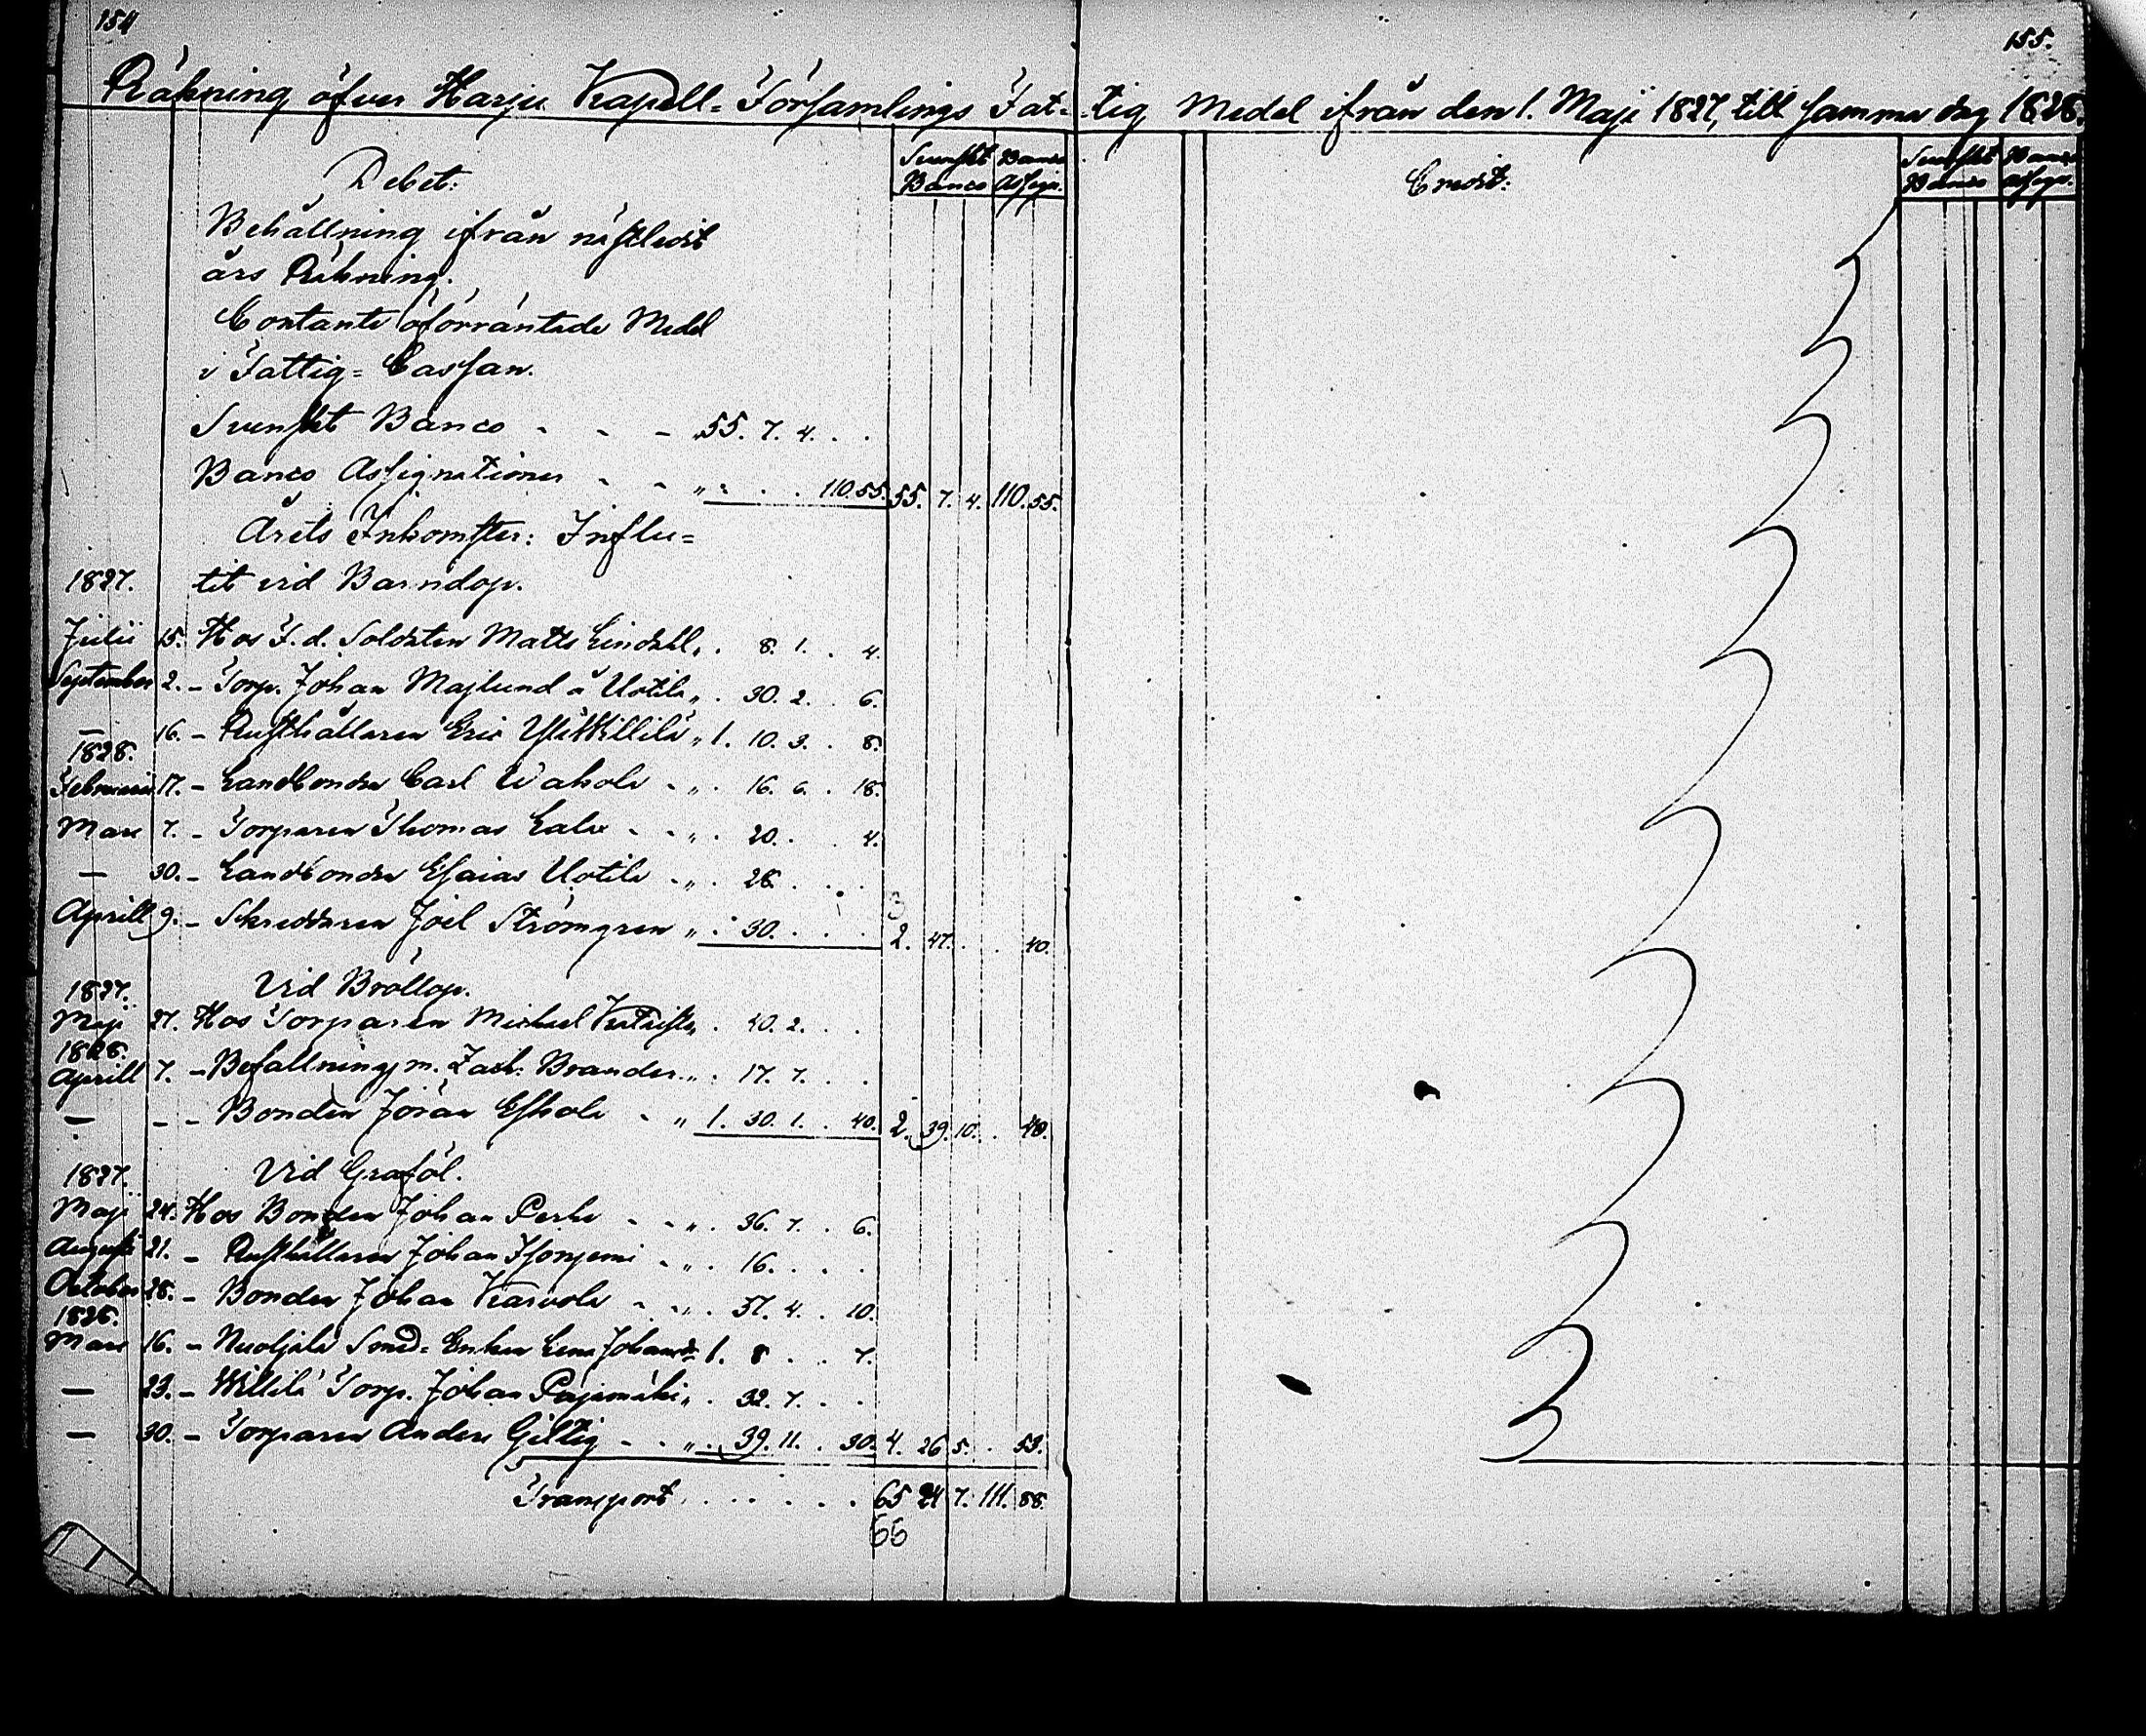 154
155.
Räkning öfver Harju Kapell-Församlings Fattig Medel ifrån den 1. Maji 1827, till samma dag 1828.
Debet: Svenskt Banco Banco Assign.
Credit: Svenskt Banco Banco Assign.
Behållning ifrån nästledit
års Räkning.
Contante oförräntade Medel
i Fattig-Cassan.
Svenskt Banco - - - „ 55. 7. 4. . .
Banco Assignationer - - „ . . . 110. 55. 55. 7. 4. 110. 55.
Årets Inkomster: Influ=
1827. tit vid Barndop.
Julii 15. Hos F. d. Soldaten Matts Lindahl „ . 8. 1. . 4.
September 2. - Torp. Johan Majlund å Uotila „ . 30. 2. . 6.
— 16. - Rusthållaren Eric YliWillilä „ 1. 10. 3. . 8.
1828.
Februarii 17. - Landbonden Carl Uahola - „ . 16. 6. . 18.
Mars 7. - Torparen Thomas Lale - - „ . 20. . . 4.
— 30. - Landbonden Esaias Uotila - „ . 28. . . .
3
Aprill 9. - Skreddaren Joel Strömgren „ . 30. . . . 2. 47. . . 40.
1827. Vid Bröllop.
Maji 27. Hos Torparen Michael „ . 40. 2. . .
1828.
Aprill 7. - Befallningsm. Zach. Brander „ . 17. 7. . .
— - - Bonden Jöran Eskola - „ 1. 30. 1. . 40. 2. 39. 10. . 40.
1827. Vid Graföl.
Maji 24. Hos Bonden Johan Perho - - „ . 36. 7. . 6.
Augusti 21. - Rusthållaren Johan Isoniemi - „ . 16. . . .
October 28. - Bonden Johan Karvola - - „ . 37. 4. . 10.
1828.
Mars 16. - Nuoljala Smed-Enkan Lena Johansdr 1. 8 . . 7.
— 23. - Willilä Torp. Johan Pajamäki „ . 32. 7. . .
— 30. - Torparen Anders Giltig - - „ . 39. 11. . 30. 4. 26 5. . 53.
Transport . . . . . . 65 24 7. 111. 88.
66